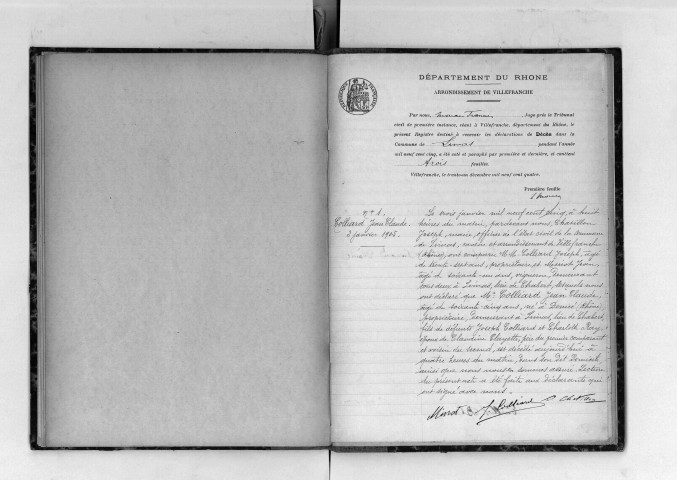 DÉPARTEMENT DU RHONE
ARRONDISSEMENT DE VILLEFRANCHE
Par nous, Juge près le Tribunal
civil de première instance, séant à Villefranche, département du Rhône, le
présent Registre destiné à recevoir les déclarations de Décès dans la
Commune de Limas pendant l'année
mil neuf cent cinq, a été coté et paraphé par première et dernière, et contient
trois feuilles.
Villefranche, le trente-un décembre mil neuf cent quatre.
Première feuille
N° 1.
Colliard Jean Claude
3 janvier 1905.
Le trois janvier mil neuf cent cinq, à huit
heures du matin, pardevant nous, Chatillon
Joseph, maire, officier de l'état civil de la commune
de Limas, canton et arrondissement de Villefranche
(Rhône), ont comparu M.M. Colliard Joseph, âgé
de trente-sept ans, propriétaire, et Jean,
âgé de soixante-un ans, vigneron, demeurant
tous deux à Limas, lieu de Chabert, lesquels nous
ont déclaré que Mr Colliard Jean Claude,
âgé de soixante-cinq ans, né à (Rhône)
propriétaire, demeurant à Limas, lieu de Chabert,
fils de défunts Joseph Colliard et Charlotte
époux de Claudine père du premier comparant
et voisin du second, est décédé aujourd'hui à
quatre heures du matin, dans son dit domicile
ainsi que nous nous en sommes assuré. Lecture
du présent acte a été faite aux déclarants qui
ont signé avec nous.
J. Colliard